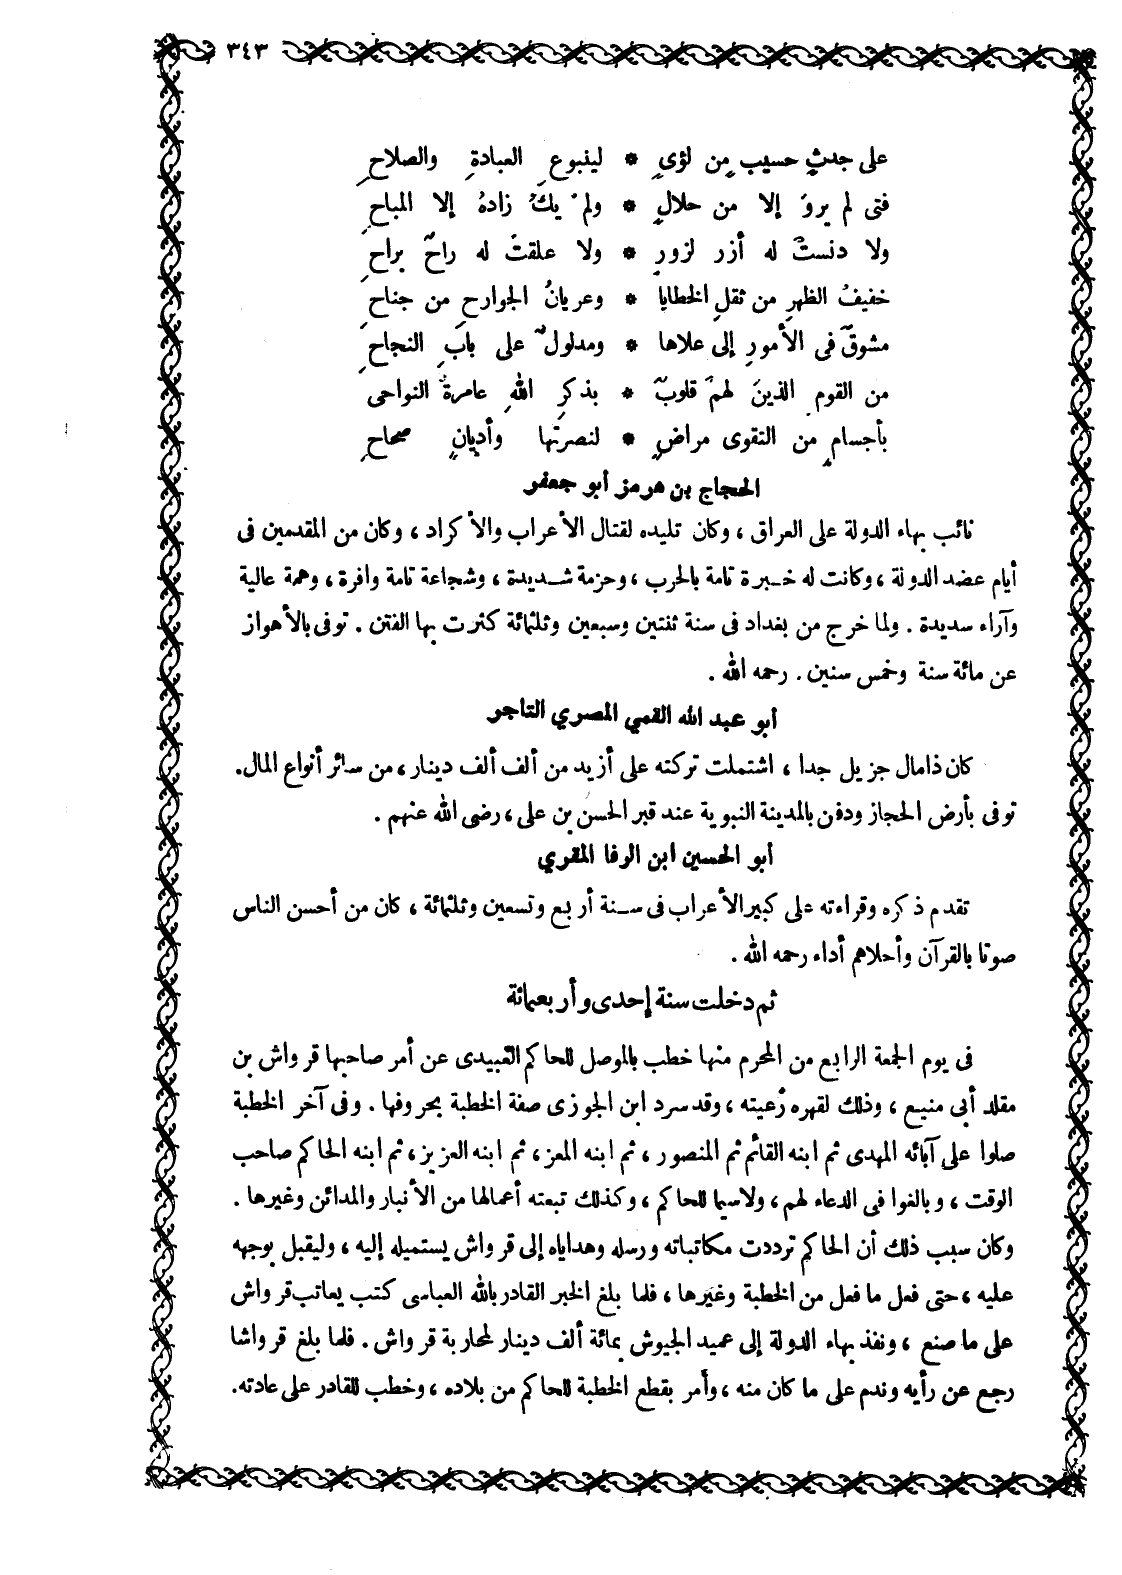 ٣٤٣
على جدثٍ حسيبٍ من لؤىٍ * لينبوعِ العبادةِ والصلاحِ
فتى لم يروَ إلا من حلالٍ * ولم يكُ زادهُ إلا المباحِ
ولا دنستْ له أزر لزورٍ * ولا علقتْ له راحٌ براحِ
خفيفُ الظهرِ من ثقلِ الخطايا * وعريانُ الجوارحِ من جناحِ
مشوقٌ فى الأمورِ إلى علاها * ومدلولٌ على بابِ النجاحِ
من القومِ الذينَ لهمْ قلوبٌ * بذكرِ اللهِ عامرةُ النواحى
بأجسامٍ من التقوى مراضٍ * لنصرتها وأديانٍ صحاحِ
الحجاج بن هرمز أبو جعفر
نائب بهاء الدولة على العراق ، وكان تليده لقتال الأعراب والأكراد ، وكان من المقدمين فى
أيام عضد الدولة ، وكانت له خبرة تامة بالحرب ، وحزمة شديدة ، وشجاعة تامة وافرة ، وهمة عالية
وآراء سديدة . ولما خرج من بغداد فى سنة ثنتين وسبعين وثلثمائة كثرت بها الفتن . توفى بالأهواز
عن مائة سنة وخمس سنين . رحمه الله .
أبو عبد الله القمي المصري التاجر
كان ذا مال جزيل جدا ، اشتملت تركته على أزيد من ألف ألف دينار ، من سائر أنواع المال.
توفى بأرض الحجاز ودفن بالمدينة النبوية عند قبر الحسن بن على ، رضى الله عنهم .
أبو الحسين ابن الرفا المقري
تقدم ذكره وقراءته على كبير الأعراب فى سنة أربع وتسعين وثلثمائة ، كان من أحسن الناس
صوتا بالقرآن وأحلاهم أداء رحمه الله .
ثم دخلت سنة إحدى وأربعمائة
فى يوم الجمعة الرابع من المحرم منها خطب بالموصل للحاكم العبيدى عن أمر صاحبها قرواش بن
مقلد أبى منيع ، وذلك لقهره رعيته ، وقد سرد ابن الجوزى صفة الخطبة بحروفها . وفى آخر الخطبة
صلوا على آبائه المهدى ثم ابنه القائم ثم المنصور ، ثم ابنه المعز ، ثم ابنه العزيز ، ثم ابنه الحاكم صاحب
الوقت ، وبالغوا فى الدعاء لهم ، ولاسيما للحاكم ، وكذلك تبعته أعمالها من الأنبار والمدائن وغيرها .
وكان سبب ذلك أن الحاكم ترددت مكاتباته ورسله وهداياه إلى قرواش يستميله إليه ، وليقبل بوجهه
عليه ، حتى فعل ما فعل من الخطبة وغيرها ، فلما بلغ الخبر القادر بالله العباسى كتب يعاتب قرواش
على ما صنع ، ونفذ بهاء الدولة إلى عميد الجيوش بمائة ألف دينار لمحاربة قرواش . فلما بلغ قرواشا
رجع عن رأيه وندم على ما كان منه ، وأمر بقطع الخطبة للحاكم من بلاده ، وخطب للقادر على عادته.